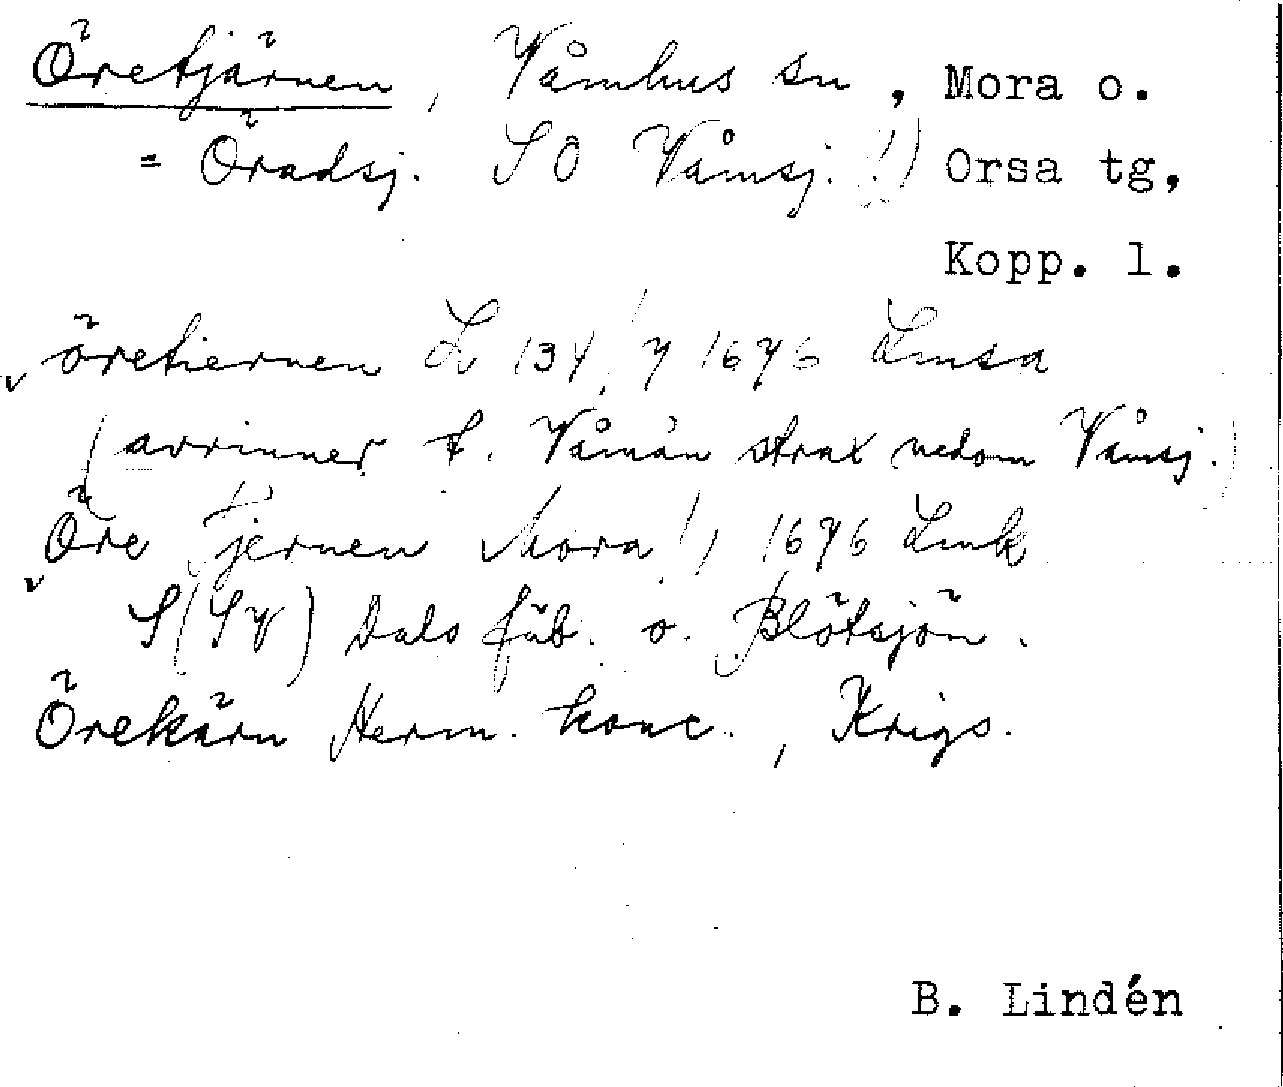 Öretjärnen, Våmhus sn, Mora o.
= Öradsj. SO Våmsj. !) Orsa tg,
Kopp. l.
öretiernen L 134, 1676 Lmsa
(avrinner t. Våmån strax nedom Våmsj.)
Öre Tjernen Mora!, 1676 Lmk
S(SV) Dals fäb. o. Blötsjön.
Örekärn Herm. konc., Krigs.
B. Lindén